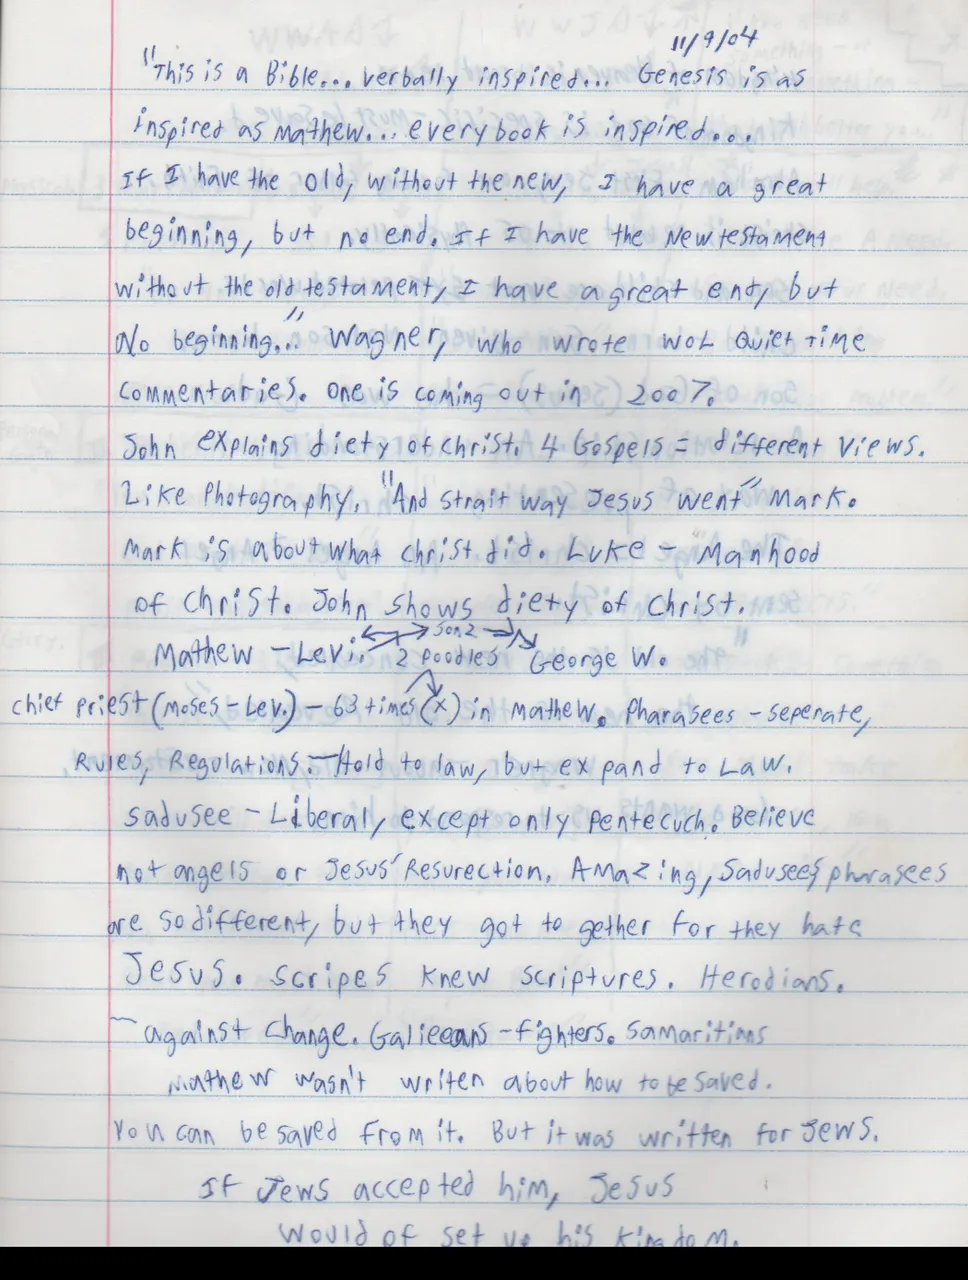 11/9/04
"This is a Bible... verbally inspired... Genesis is as
inspired as Mathew... every book is inspired....
If I have the old, without the new, I have a great
beginning, but no end. If I have the New testament
without the old testament, I have a great end, but
No beginning..." Wagner, who wrote WOL Quiet Time
Commentaries. One is coming out in 2007.
John explains diety of christ. 4 Gospels = different views.
Like Photography. "And strait way Jesus went" Mark.
Mark is about what christ did. Luke - Manhood
of Christ. John shows diety of Christ.
Mathew - Levi. 2 poodles George W.
chief priest (Moses - Lev.) - 63 times (x) in Mathew. Pharasees - seperate,
Rules, Regulations. - Hold to law, but expand to Law.
Sadusee - Liberal, except only pentecuch. Believe
not angels or Jesus' Resurection. Amazing, Sadusees, pharasees
are so different, but they got to gether for they hate
Jesus. Scripes knew scriptures. Herodians.
- against change. Galieeans - fighters. Samaritians
Mathew wasn't writen about how to be saved.
You can be saved from it. But it was written for Jews.
If Jews accepted him, Jesus
would of set up his kingdom.